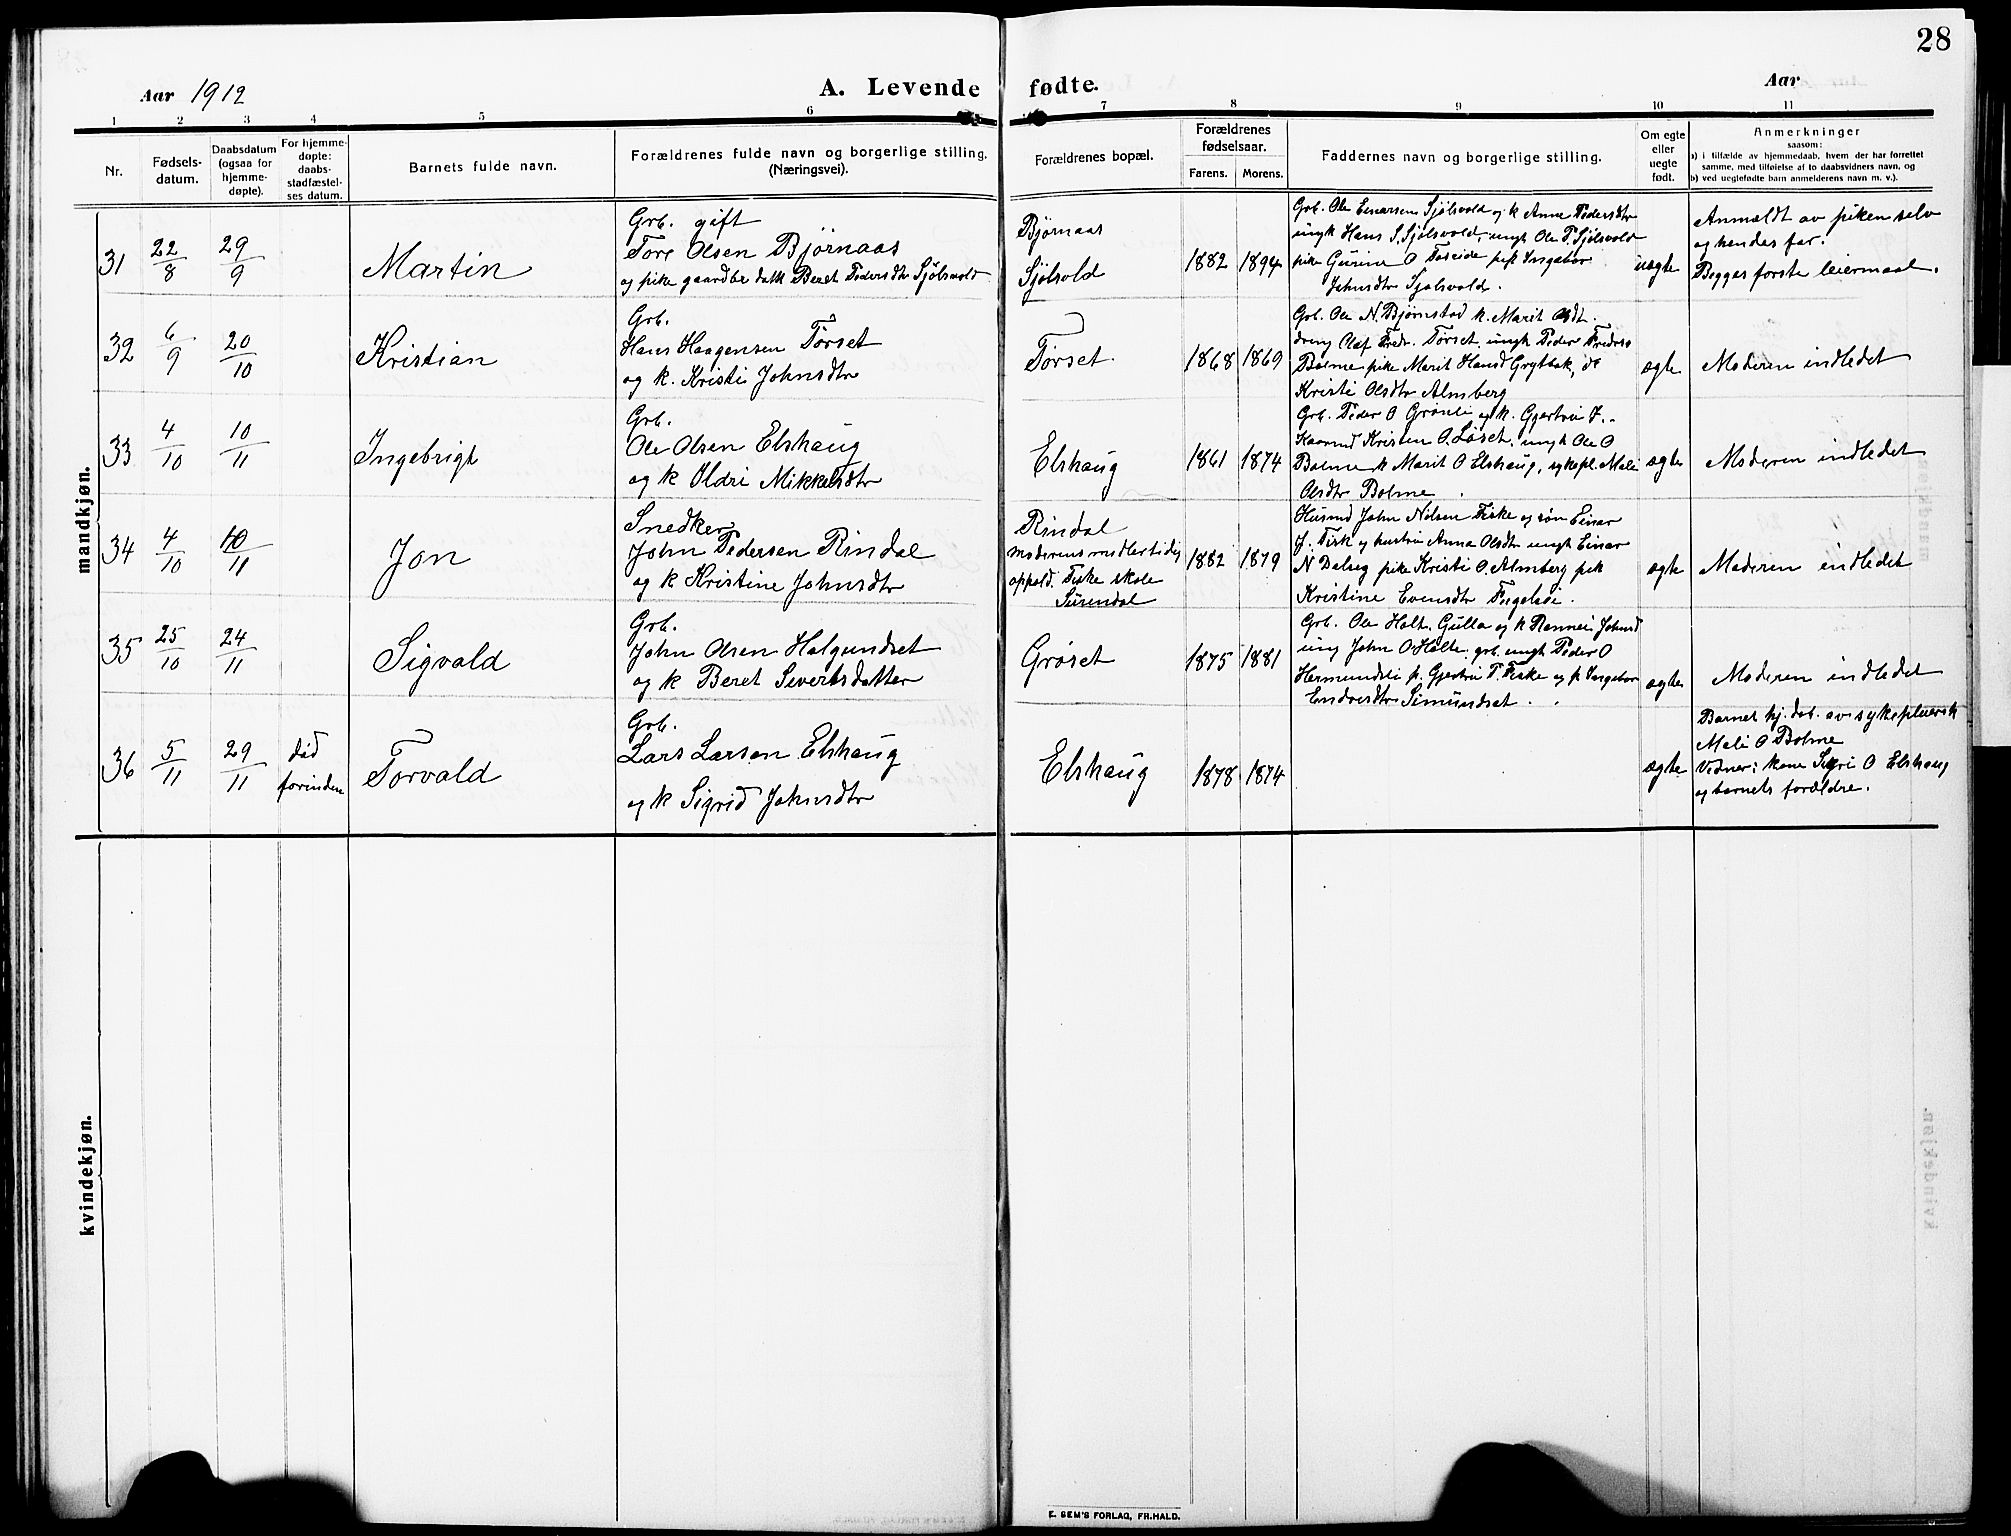 28
Aar 1912
A. Levende fødte.
Aar
1 2 3 4 5 6 7 8 9 10 11
Nr.
Fødsels-
datum.
Daabsdatum
(ogsaa for
hjemme-
døpte).
For hjemme-
døpte:
daabs-
stadfæstel-
ses datum.
Barnets fulde navn.
Forældrenes fulde navn og borgerlige stilling.
(Næringsvei).
Forældrenes bopæl.
Forældrenes
fødselsaar.
Farens. Morens.
Faddernes navn og borgerlige stilling.
Om egte
eller
uegte
født.
Anmerkninger
saasom:
a) i tilfælde av hjemmedaab, hvem der har forrettet
samme, med tilføielse af to daabsvidners navn, og
b) ved uegtefødte barn anmelderens navn m. v.).
mandkjøn.
31
22/8
29/9
Martin
Grb. gift
Tore Olsen Bjørnaas
og pike gaardbr datt Beret Pedersdtr Sjølsvold
Bjørnaas
Sjølsvold
1882 1894
Grb. Ole Einarsen Sjølsvold og k Anne Pedersdtr
ungk Hans S. Sjølsvold, ungk Ole P. Sjølsvold
pike Gurine O pik Ingebor
Johnsdtr Sjølsvold.
uægte
Anmeldt av piken selv
og hendes far.
Begges første leiermaal.
32
6/9
20/10
Kristian
Grb.
Hans Haagensen Tørset
og k. Kristi Johnsdtr
Tørset
1868 1869
Grb. Ole N. Bjørnstad k. Marit Olsdt.
dreng Olaf Fredr. Tørset, ungk Peder Fredrs
Bolme pike Marit Hansd Grytbak, do
Kristi Olsdtr Almberg
ægte
Moderen indledet
33
4/10
10/11
Ingebrigt
Grb.
Ole Olsen Elshaug
og k Oldri Mikkelsdtr
Elshaug
1861 1874
Grb. Peder O Grønli og k. Gjertrui J..
Kaarmd Kristen O. Løset, ungk Ole O
Bolme k Marit O Elshaug, sykepl. Mali
Olsdtr Bolme.
ægte
Moderen indledet
34
4/10
10/11
Jon
Snedker
John Pedersen Rindal
og k Kristine Johnsdtr
Rindal
moderens midlertidig
opphold. Fiske skole
Surendal
1882 1879
Husmd John Nilsen Fiske og søn Einar
J. Fisk og hustru Anna Olsdtr ungk Einar
N Dalseg pike Kristi O. Almberg pik
Kristine Evensdtr
ægte
Moderen indledet
35
25/10
24/11
Sigvald
Grb.
John Olsen Halgundset
og k Beret Sivertsdatter
Grøset
1875 1881
Grb. Ole Halt. Gulla og k Rannei Johnsd
ung John O Holte, grb. ungk Peder O
Hermundsli p. Gjertru T. Fiske og p Ingebor
Endresdtr Simundset.
ægte
Moderen indledet
36
5/11
29/11
død
forinden
Torvald
Grb.
Lars Larsen Elshaug
og k Sigrid Johnsdtr
Elshaug
1878 1874
ægte
Barnet hj. døbt av sykepleiersk
Mali O Bolme
Vidner: kone Sigri O Elshaug
og barnets forældre.
kvindekjøn.
E. SEM'S FORLAG, FR.HALD.